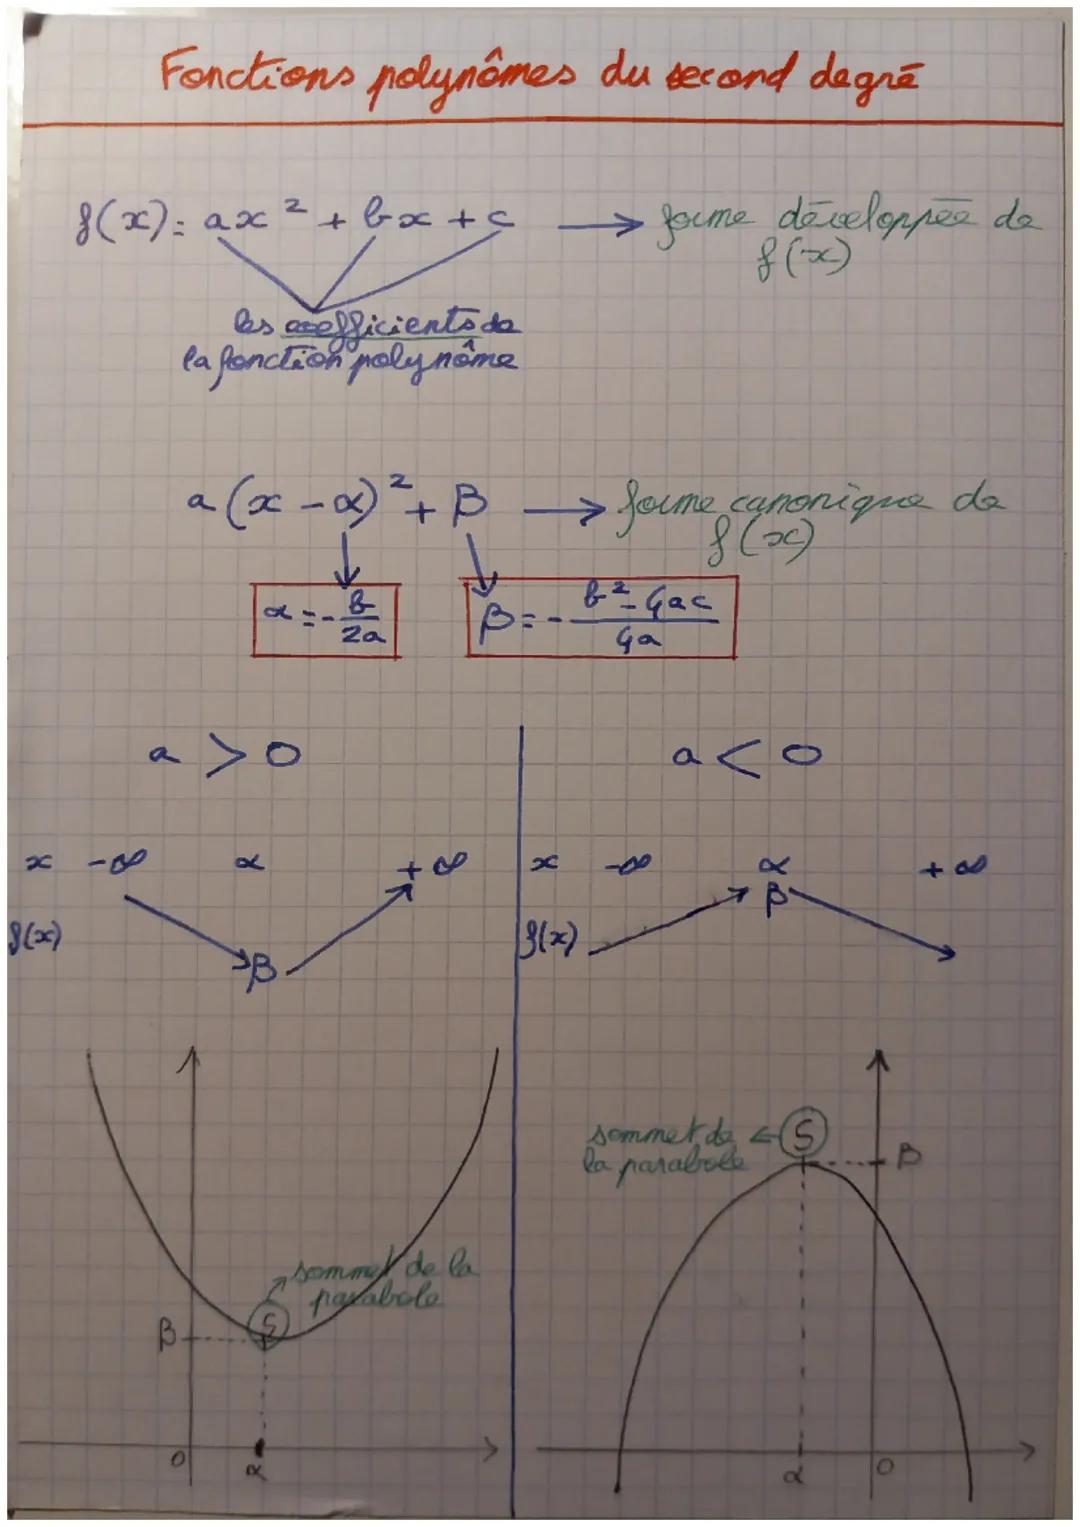 Fonctions polynômes du second degré
f(x) = ax² + bx + c → forme développée de f(x)
les coefficients de
la fonction polynôme
a(x - α)² + β → forme canonique de f(x)
α = - b/2a
β = - b² - 4ac/4a
a > 0
a < 0
x -∞ α +∞
f(x)
β
x -∞ α +∞
β
f(x)
sommet de la
parabole
S
β
0
α
sommet de
la parabole
S
β
α
0